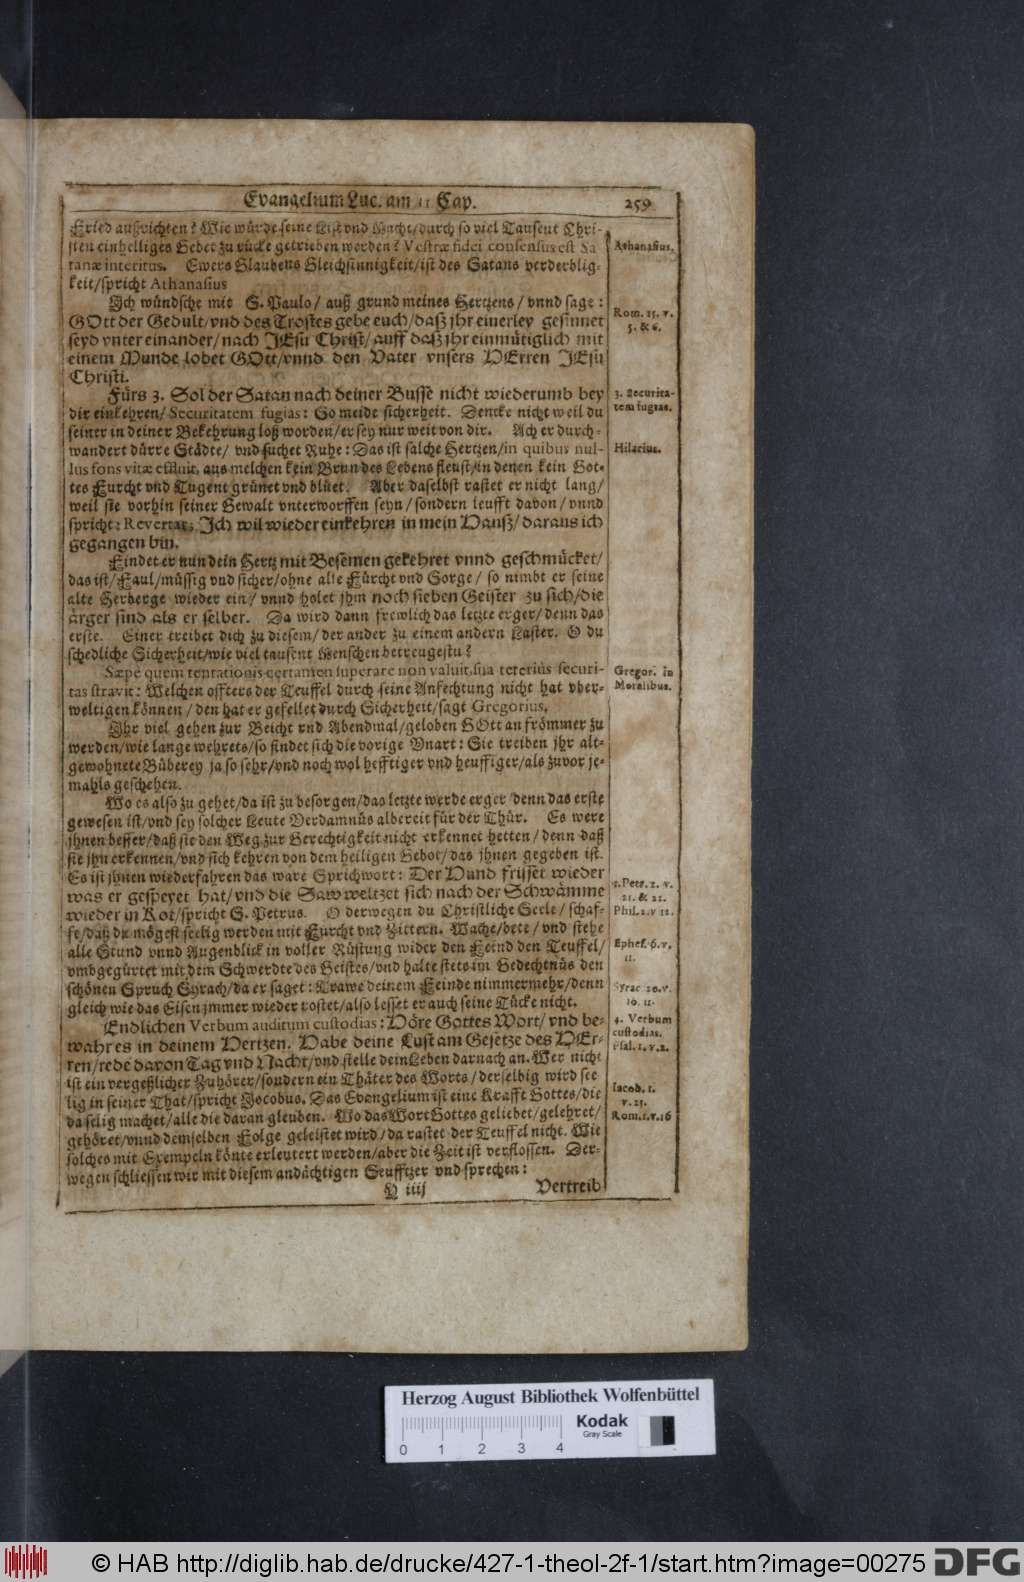 Evangelium Luc. am 11 Cap. 259
Fried außrichten? Wie würde seine List vnd Macht/durch so viel Tausent Chri-
sten einhelliges Gebet zu rücke getrieben werden? Vestræ fidei consensus est Sa-
tanæ interitus. Ewers Glaubens Gleichsinnigkeit/ist des Satans verderblig-
keit/spricht Athanasius
Athanasius.
Ich wündsche mit S. Paulo/ auß grund meines Hertzens/ vnnd sage:
GOtt der Gedult/vnd des Trostes gebe euch/daß jhr einerley gesinnet
seyd vnter einander/nach JEsu Christ/auff daß jhr einmütiglich mit
einem Munde lobet GOtt/vnnd den Vater vnsers HErren JEsu
Christi.
Rom. 15. v.
5. & 6.
Fürs 3. Sol der Satan nach deiner Busse nicht wiederumb bey
dir einkehren/ Securitatem fugias: So meide sicherheit. Dencke nicht weil du
seiner in deiner Bekehrung loß worden/er sey nur weit von dir. Ach er durch-
wandert dürre Städte/ vnd suchet Ruhe: Das ist solche Hertzen/in quibus nul-
lus fons vitæ effluit, aus welchen kein Brun des Lebens fleust/in denen kein Got-
tes Furcht vnd Tugent grünet vnd blüet. Aber daselbst rastet er nicht lang/
weil sie vorhin seiner Gewalt vnterworffen seyn/sondern leufft davon/vnnd
spricht: Revertar, Ich wil wieder einkehren in mein Hauß/daraus ich
gegangen bin.
3. Securita-
tem fugias.
Hilarius.
Findet er nun dein Hertz mit Besemen gekehret vnnd geschmücket/
das ist/Faul/müssig vnd sicher/ohne alle Fürcht vnd Sorge/ so nimbt er seine
alte Herberge wieder ein/ vnnd holet jhm noch sieben Geister zu sich/die
ärger sind als er selber. Da wird dann frewlich das letzte erger/denn das
erste. Einer treibet dich zu diesem/der ander zu einem andern Laster. O du
schedliche Sicherheit/wie viel tausent Menschen betreugestu?
Sæpe quem tentrationis certamen superare non valuit, sua teterius securi-
tas stravit: Welchen offters der Teuffel durch seine Anfechtung nicht hat vber-
weltigen können/den hat er gefellet durch Sicherheit/sagt Gregorius.
Gregor. in
Moralibus.
Ihr viel gehen zur Beicht vnd Abendmal/geloben GOtt an frömmer zu
werden/wie lange wehrets/so findet sich die vorige Vnart: Sie treiben jhr alt-
gewohnete Büberey ja so sehr/vnd noch wol hefftiger vnd heuffiger/als zuvor je-
mahls geschehen.
Wo es also zu gehet/da ist zu besorgen/das letzte werde erger denn das erste
gewesen ist/vnd sey solcher Leute Verdamnüs albereit für der Thür. Es were
jhnen besser/daß sie den Weg zur Gerechtigkeit nicht erkennet hetten/denn daß
sie jhn erkennen/vnd sich kehren von dem heiligen Gebot/das jhnen gegeben ist.
Es ist jhnen wiederfahren das ware Sprichwort: Der Hund frisset wieder
was er gespeyet hat/vnd die Saw weltzet sich nach der Schwämme
wieder in Kot/spricht S. Petrus. O derwegen du Christliche Seele/schaf-
fe/daß du mögest seelig werden mit Furcht vnd Zittern. Wache/bete/ vnd stehe
alle Stund vnnd Augenblick in voller Rüstung wider den Feind den Teuffel/
vmbgegürtet mit dem Schwerdte des Geistes/vnd halte stets im Gedechtnüs den
schönen Spruch Syrach/da er saget: Trawe deinem Feinde nimmermehr/denn
gleich wie das Eisen jmmer wieder rostet/also lesset er auch seine Tücke nicht.
2. Petr. 2. v.
21. & 22.
Phil. 2. v 12.
Ephes. 6. v.
11.
Syrac 10. v.
10. 11.
Endlichen Verbum auditum custodias: Höre Gottes Wort/ vnd be-
wahr es in deinem Hertzen. Habe deine Lust am Gesetze des HEr-
ren/rede davon Tag vnd Nacht/vnd stelle dein Leben darnach an. Wer nicht
ist ein vergeßlicher Zuhörer/sondern ein Thäter des Worts/derselbig wird see
lig in seiner That/spricht Jacobus. Das Evangelium ist eine Krafft Gottes/die
da selig machet/alle die daran gleuben. Wo das Wort Gottes geliebet/gelehret/
gehöret/vnnd demselben Folge geleistet wird/da rastet der Teuffel nicht. Wie
solches mit Exempeln könte erleutert werden/aber die Zeit ist verflossen. Der-
wegen schliessen wir mit diesem andächtigen Seufftzer vnd sprechen:
4. Verbum
custodias.
Psal. 1. v. 2.
Iacob. 1.
v. 25.
Rom. 1. v. 16
Y iiij Vertreib
Herzog August Bibliothek Wolfenbüttel
0 1 2 3 4
Kodak
Gray Scale
© HAB http://diglib.hab.de/drucke/427-1-theol-2f-1/start.htm?image=00275 DFG